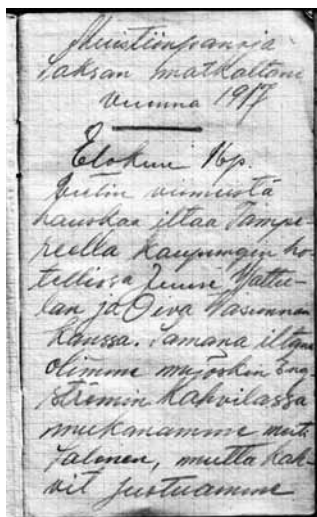 Muistiinpanoja
Saksan matkaltani
vuonna 1917
Elokuu 16p.
Vietin viimeistä
hauskaa iltaa Tampe-
reella kaupungin ho-
tellissa Jussi Yattu-
lan ja Oiva
kanssa. Samana iltana
olimme myöskin Eng-
strömin Kahvilassa
mukanamme
Salonen, mutta kah-
vit juotuamme